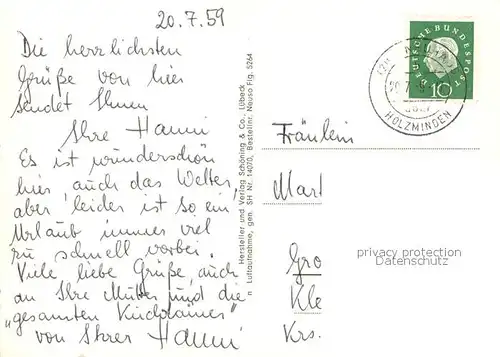 20.7.59
Die herrlichsten
Grüße von hier
sendet Ihnen
Ihre Hanni
Es ist wunderschön
hier, auch das Wetter,
aber leider ist so ein
Urlaub immer viel
zu schnell vorbei.
Viele liebe Grüße, auch
an Ihre Mutter und die
"gesamten
von Ihrer Hanni
Hersteller und Verlag Schöning & Co., Lübeck
n Luftaufnahme, gen. SH Nr. 14070, Bestellnr. Neuso Flg. 5264
DEUTSCHE BUNDESPOST
10
HOLZMINDEN
Fräulein
Mar
Gro
Kle
Krs.
privacy protection
Datenschutz